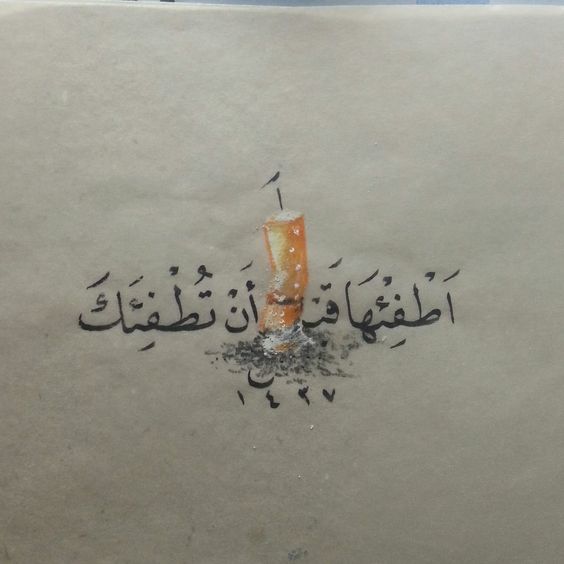 اَطْفِئْهَا قَبْلَ أَنْ تُطْفِئَكَ
١٤٣٧